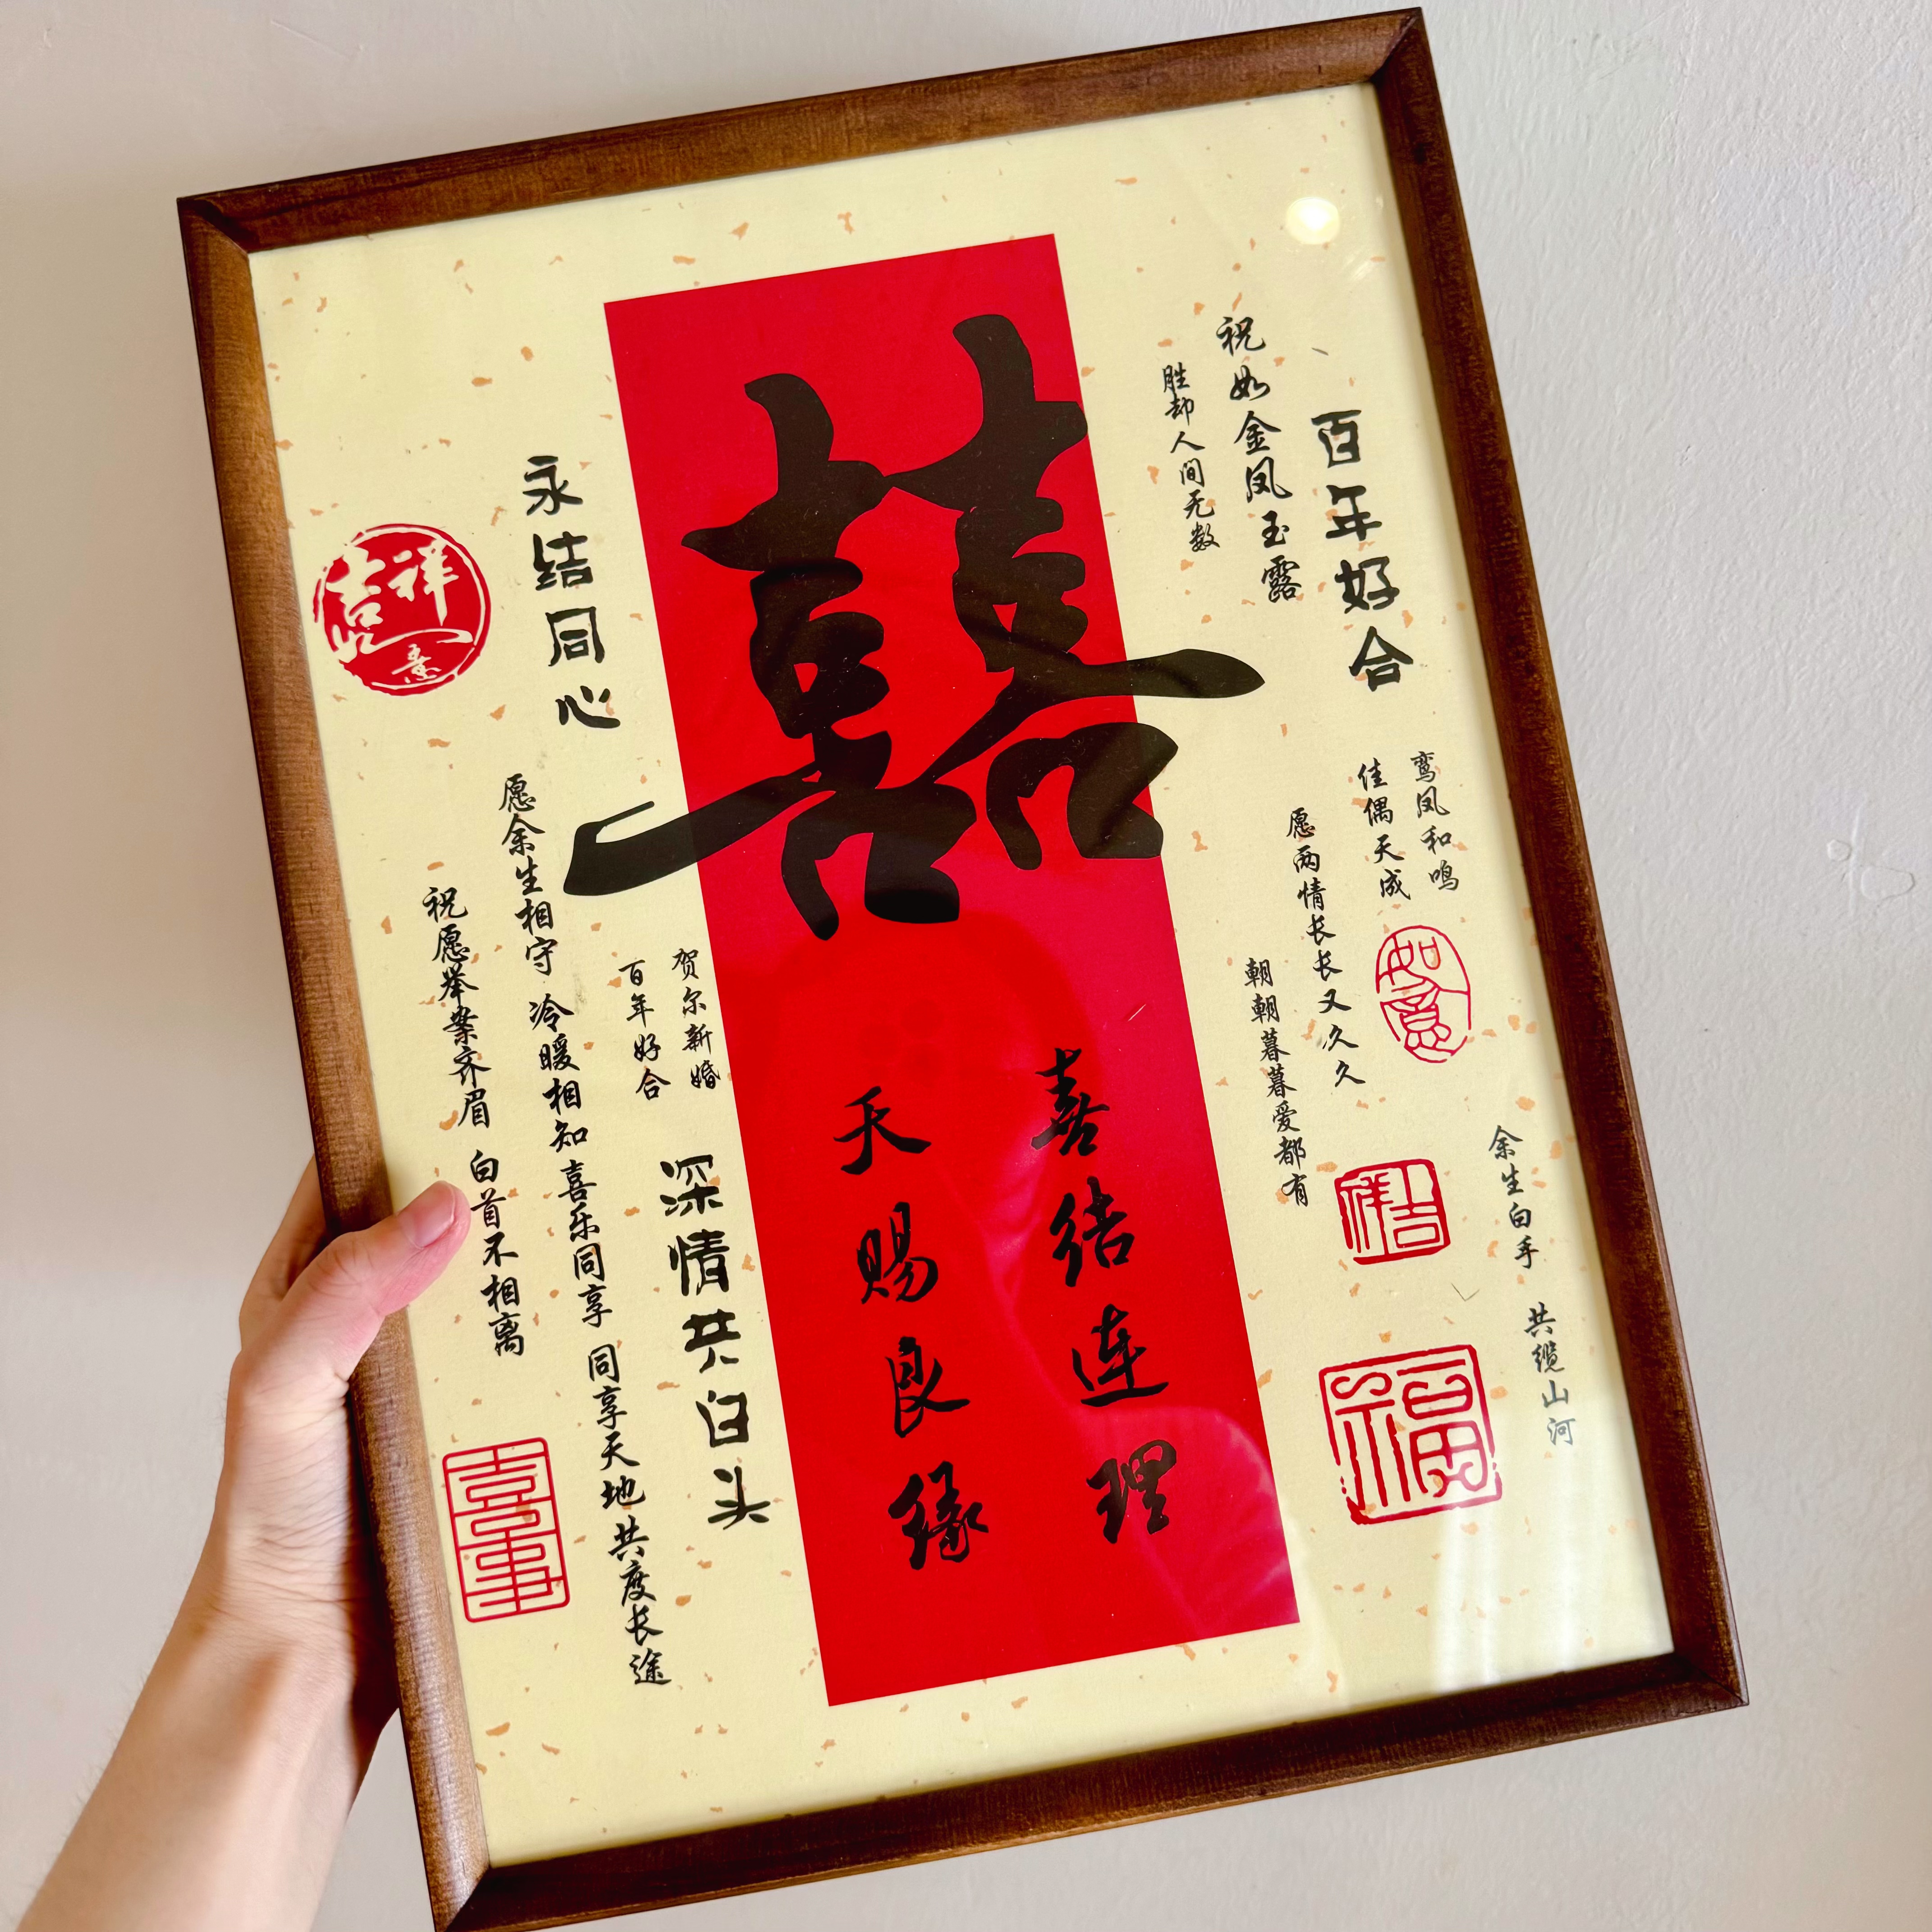 百年好合
祝如金凤玉露
胜却人间无数
鸾凤和鸣
佳偶天成
愿两情长长又久久
朝朝暮暮爱都有
如意
吉祥
余生白手 共缆山河
福
囍
喜结连理
天赐良缘
永结同心
吉祥如意
贺尔新婚
百年好合
深情共白头
愿余生相守 冷暖相知 喜乐同享 同享天地 共度长途
祝愿举案齐眉 白首不相离
喜事